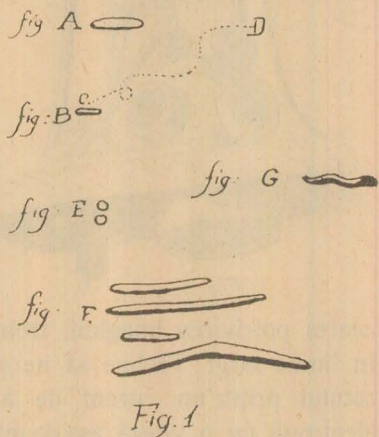 fig A D
fig: B C.
fig. G
fig. E
fig. F.
Fig. 1